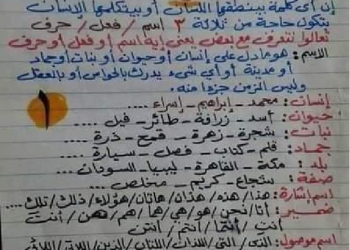 إن أى كلمة بينطقها اللسان أو بيتكلمها الإنسان
بتكون حاجة من ثلاثة ٣ اسم / فعل / حرف
تعالوا نتعرف مع بعض يعنى إيه اسم أو فعل أو حرف
الاسم: هو ما دل على إنسان أو حيوان أو نبات أو جماد
أو مدينة أو أى شىء يدرك بالحواس أو بالعقل
وليس الزمن جزءا منه.
إنسان: محمد - إبراهيم - إسراء ....
حيوان: أسد - زرافة - طائر - فيل ....
نبات: شجرة - زهرة - قمح - ذرة ....
جماد: قلم - كتاب - فصل - سيارة ....
بلد: مكة - القاهرة - ليبيا - السودان ....
صفة: شجاع - كريم - مخلص ....
اسم إشارة: هذا / هذه / هذان / هاتان / هؤلاء / ذلك / تلك
ضمير: أنا / نحن / هو / هى / هما / هم / هن / أنت
أنتِ / أنتما / أنتم / أنتن
اسم موصول: الذى / التى / اللذان / اللتان / الذين
١